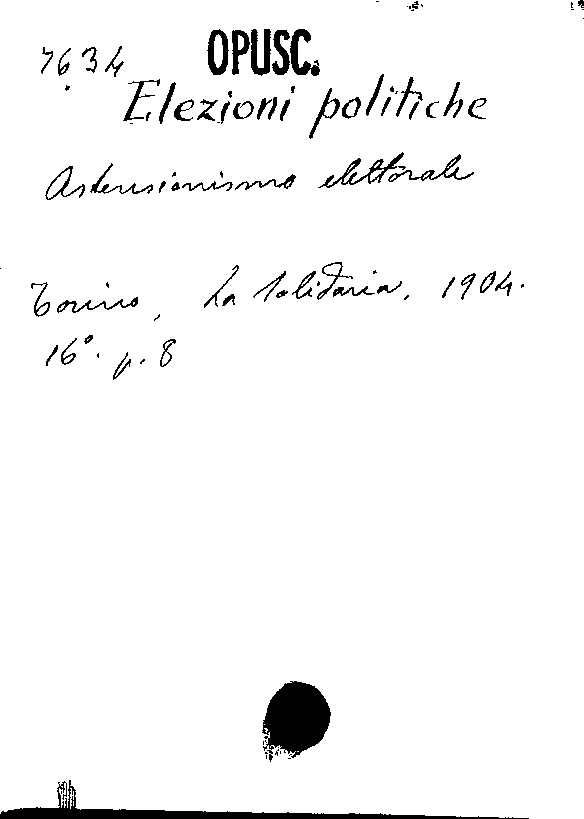 7634 OPUSC.
Elezioni politiche
Astensionismo elettorale
Torino, La Solidaria, 1904.
16°. p. 8